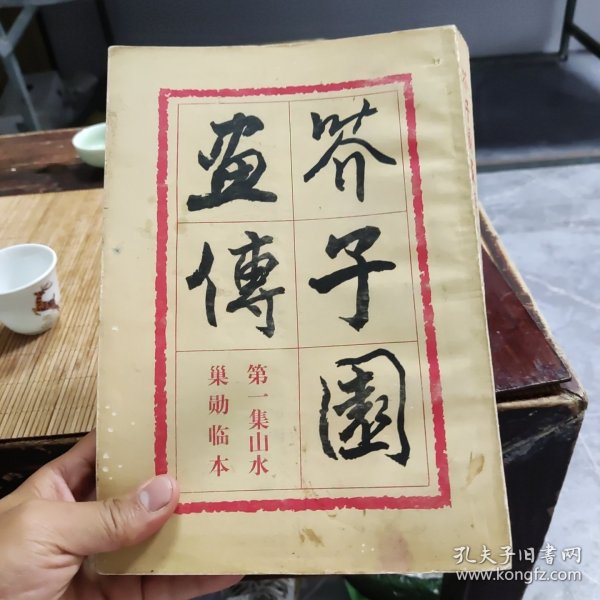 芥子園
畫傳
第一集山水
巢勛临本
孔夫子旧書网
www.kongfz.com